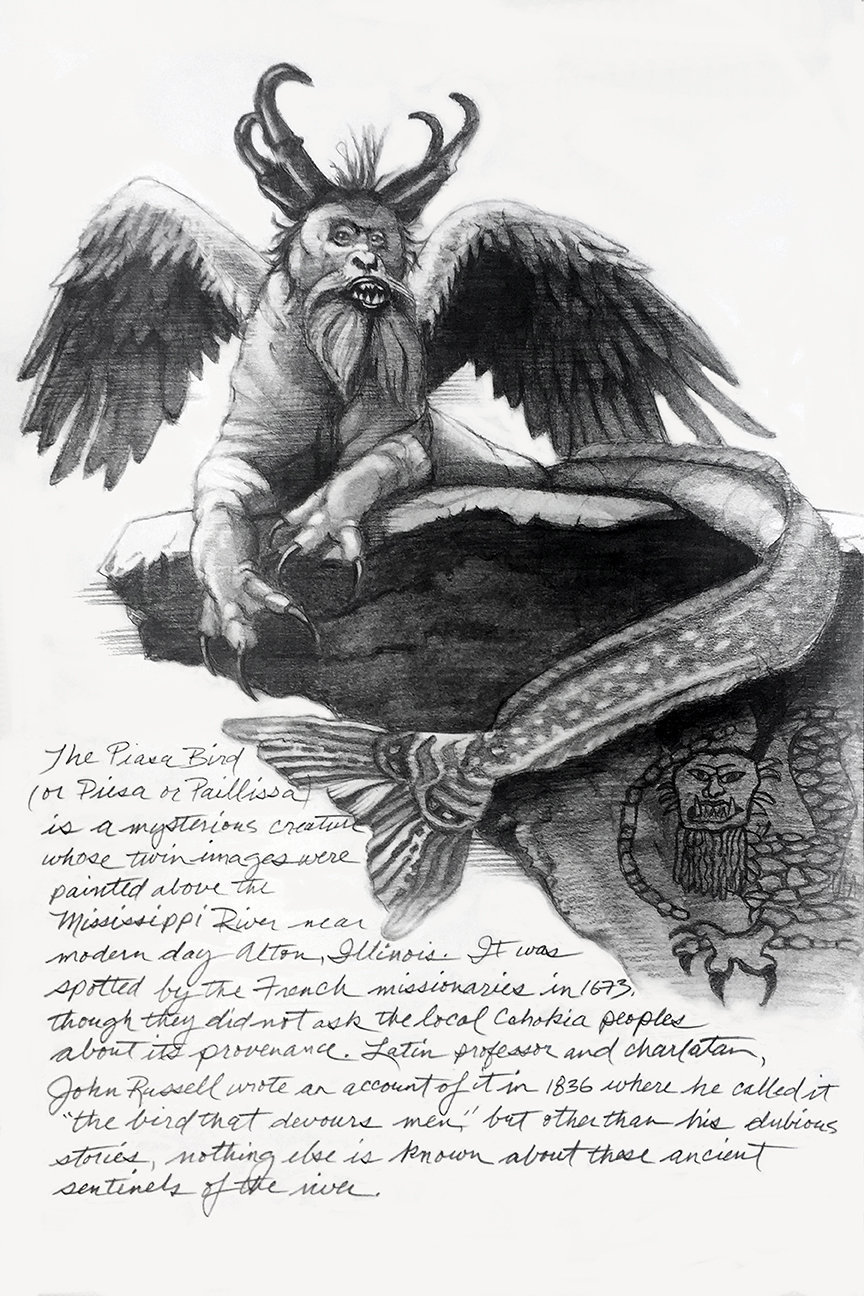 The Piasa Bird
(or Piesa or Paillissa)
is a mysterious creature
whose twin images were
painted above the
Mississippi River near
modern day Alton, Illinois. It was
spotted by the French missionaries in 1673,
though they did not ask the local Cahokia peoples
about its provenance. Latin professor and charlatan,
John Russell wrote an account of it in 1836 where he called it
"the bird that devours men," but other than his dubious
stories, nothing else is known about these ancient
sentinels of the river.